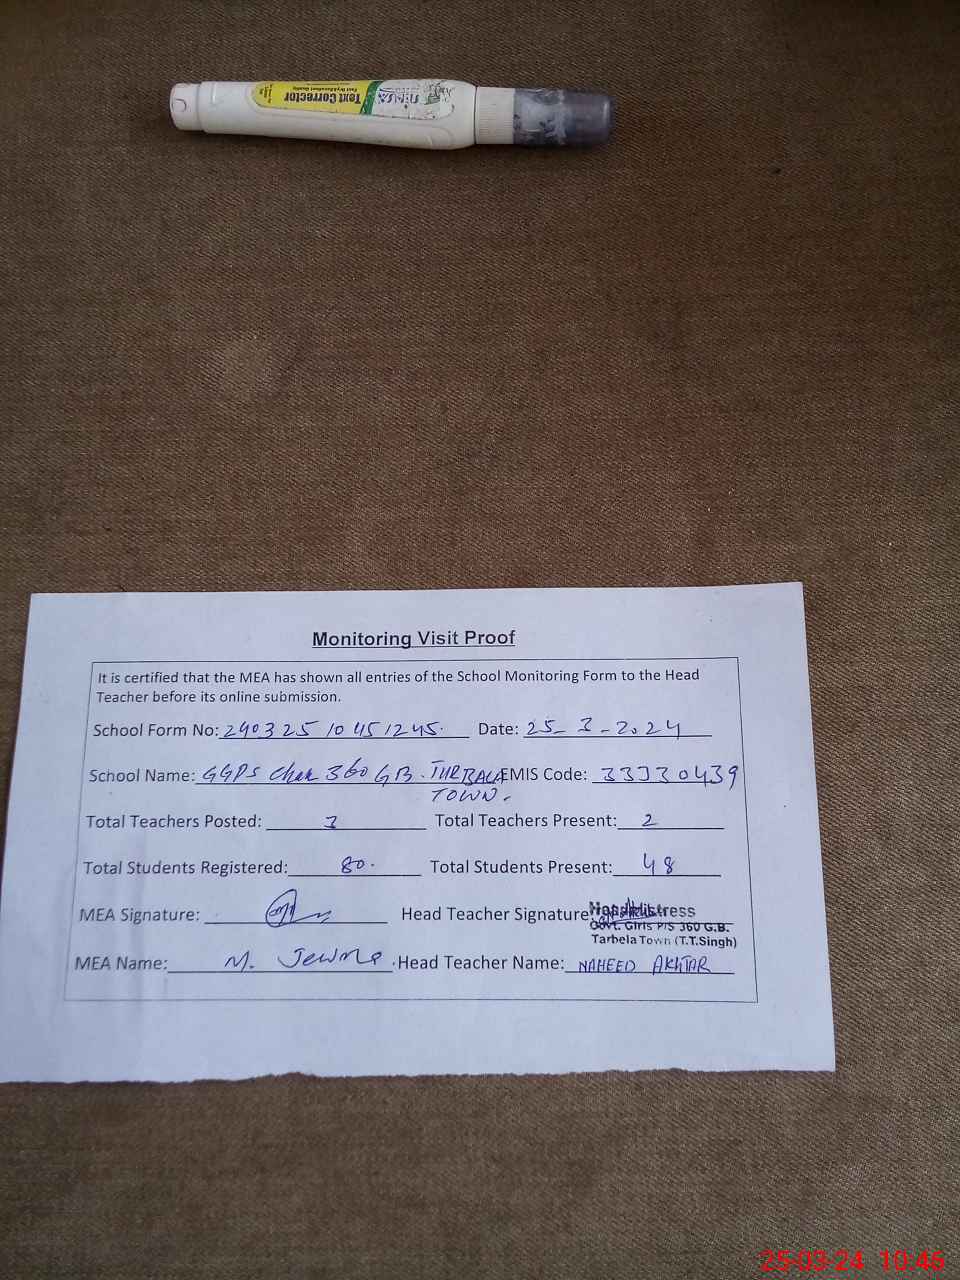 Text Corrector
Monitoring Visit Proof
It is certified that the MEA has shown all entries of the School Monitoring Form to the Head
Teacher before its online submission.
School Form No: 290325 10451245. Date: 25-3-2024
School Name: GGPS Chak 360 GB. TURBALA EMIS Code: 33330439
TOWN.
Total Teachers Posted: 3 Total Teachers Present: 2
Total Students Registered: 80. Total Students Present: 48
MEA Signature: Head Teacher Signature: Headmistress
Govt. Girls P/S 360 G.B.
Tarbela Town (T.T.Singh)
MEA Name: M. Head Teacher Name: NAHEED AKHTAR
25-03-24 10:46